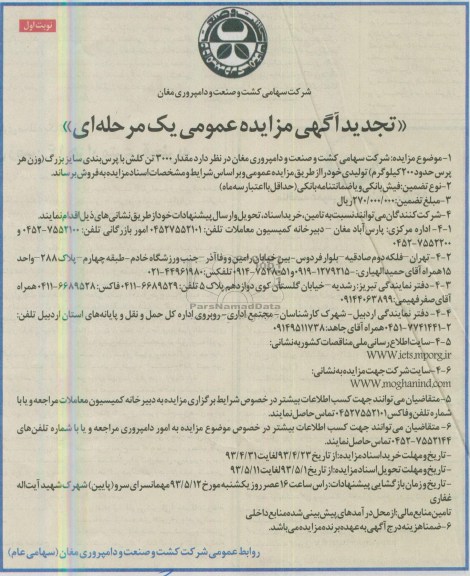 نوبت اول
شرکت سهامی کشت و صنعت و دامپروری مغان
«تجدید آگهی مزایده عمومی یک مرحله‌ای»
۱-موضوع مزایده: شرکت سهامی کشت و صنعت و دامپروری مغان در نظر دارد مقدار ۳۰۰۰ تن کلش با پرس‌بندی سایز بزرگ (وزن هر
پرس حدود ۲۰۰ کیلوگرم) تولیدی خود را از طریق مزایده عمومی و بر اساس شرایط و مشخصات اسناد مزایده به فروش برساند.
۲-نوع تضمین: فیش بانکی و یا ضمانتنامه بانکی (حداقل با اعتبار سه ماه)
۳-مبلغ تضمین: ۲۷۰/۰۰۰/۰۰۰ ریال
۴-شرکت‌کنندگان می‌توانند نسبت به تامین، خرید اسناد، تحویل و ارسال پیشنهادات خود از طریق نشانی‌های ذیل اقدام نمایند.
۴-۱- اداره مرکزی: پارس‌آباد مغان - دبیرخانه کمیسیون معاملات تلفن: ۰۴۵۲۷۵۵۲۱۰۱ امور بازرگانی تلفن: ۷۵۵۲۱۰۰-۰۴۵۲ و
۷۵۵۲۲۰۰-۰۴۵۲
۴-۲- تهران - فلکه دوم صادقیه - بلوار فردوس - بین خیابان رامین و وفاآذر - جنب ورزشگاه خادم - طبقه چهارم - پلاک ۲۸۸ - واحد
۱۵ همراه آقای حمید الهیاری: ۱۲۷۹۲۱۵-۰۹۱۹ و ۰۹۱۴-۷۵۴۸۰۵۱ تلفکس: ۴۴۹۶۱۹۸۰-۰۲۱
۴-۳- دفتر نمایندگی تبریز: رشدیه - خیابان گلستان کوی دوازدهم پلاک ۵ تلفن: ۶۶۸۹۵۲۹-۰۴۱۱ فاکس: ۶۶۸۹۵۲۸-۰۴۱۱ همراه
آقای صفر فهیمی: ۰۹۱۴۴۰۶۳۸۹۹
۴-۴- دفتر نمایندگی اردبیل - شهرک کارشناسان - مجتمع اداری - روبروی اداره کل حمل و نقل و پایانه‌های استان اردبیل تلفن:
۷۷۴۱۴۴۱-۲-۰۴۵۱ همراه آقای جاهد: ۰۹۱۴۹۵۱۱۷۳۸
۴-۵- سایت اطلاع‌رسانی ملی مناقصات کشور به نشانی:
WWW.iets.mporg.ir
۴-۶- سایت شرکت جهت مزایده به نشانی:
WWW.moghanind.com
۵-متقاضیان می‌توانند جهت کسب اطلاعات بیشتر در خصوص شرایط برگزاری مزایده به دبیرخانه کمیسیون معاملات مراجعه و یا با
شماره تلفن و فاکس ۰۴۵۲۷۵۵۲۱۰۱ تماس حاصل نمایند.
۶-متقاضیان می‌توانند جهت کسب اطلاعات بیشتر در خصوص موضوع مزایده به امور دامپروری مراجعه و یا با شماره تلفن‌های
۷۵۵۲۱۴۴-۰۴۵۲ تماس حاصل نمایند.
-تاریخ و مهلت خرید اسناد مزایده: از تاریخ ۹۳/۴/۲۳ لغایت ۹۳/۴/۳۱
-تاریخ و مهلت تحویل اسناد مزایده: از تاریخ ۹۳/۵/۱ لغایت ۹۳/۵/۱۱
-تاریخ و زمان بازگشایی پیشنهادات: راس ساعت ۱۶ عصر روز یکشنبه مورخ ۹۳/۵/۱۲ مهمانسرای سرو (پایین) شهرک شهید آیت‌اله
غفاری
تامین منابع مالی: از محل درآمدهای پیش‌بینی شده منابع داخلی
۶-ضمنا هزینه درج آگهی به عهده برنده مزایده می‌باشد.
روابط عمومی شرکت کشت و صنعت و دامپروری مغان (سهامی عام)
ParsNamadData